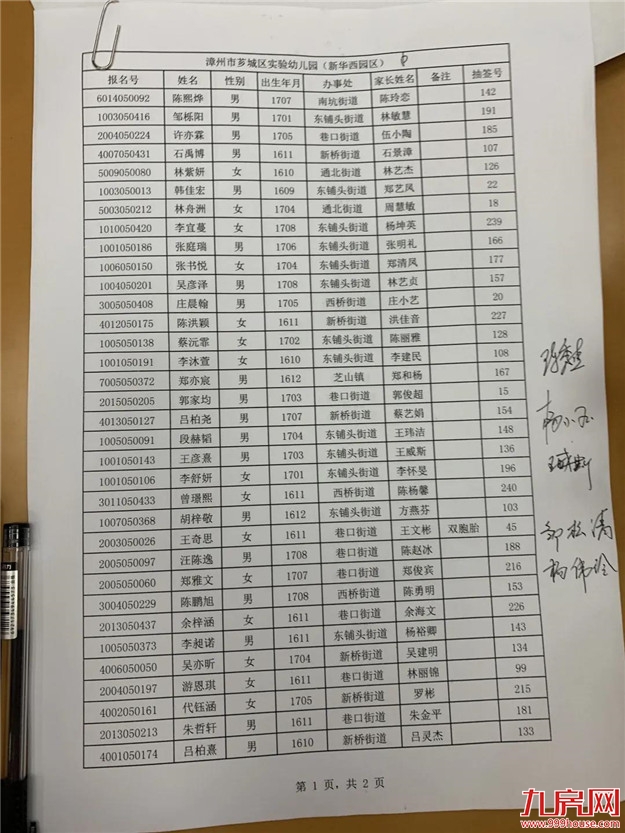 漳州市芗城区实验幼儿园（新华西园区）
报名号 姓名 性别 出生年月 办事处 家长姓名 备注 抽签号
6014050092 陈熙烨 男 1707 南坑街道 陈玲恋 142
1003050416 邹栎阳 男 1701 东铺头街道 林敏慧 191
2004050224 许亦霖 男 1705 巷口街道 伍小陶 185
4007050431 石禹博 男 1611 新桥街道 石景漳 107
5009050080 林紫妍 女 1610 通北街道 林艺杰 126
1003050013 韩佳宏 男 1609 东铺头街道 郑艺凤 22
5003050212 林舟洲 女 1704 通北街道 周慧敏 18
1010050420 李宜蔓 女 1708 东铺头街道 杨坤英 239
1001050186 张庭瑞 男 1706 东铺头街道 张明礼 166
1006050150 张书悦 女 1704 东铺头街道 郑清凤 177
1004050201 吴彦泽 男 1708 东铺头街道 林艺贞 157
3005050408 庄晨翰 男 1705 西桥街道 庄小艺 20
4012050175 陈洪颖 女 1611 新桥街道 洪佳音 227
1005050138 蔡沅霏 女 1702 东铺头街道 陈丽雅 128
1001050191 李沐萱 女 1610 东铺头街道 李建民 108
7005050372 郑亦宸 男 1612 芝山镇 郑和杨 167
2015050205 郭家均 男 1703 巷口街道 郭俊超 15
4013050127 吕柏尧 男 1707 新桥街道 蔡艺娟 154
1005050091 段赫韬 男 1704 东铺头街道 王玮洁 148
1001050143 王彦熹 男 1703 东铺头街道 王威斯 136
1001050106 李舒妍 女 1701 东铺头街道 李怀旻 196
3011050433 曾璟熙 女 1611 西桥街道 陈杨馨 240
1007050368 胡梓敬 男 1612 东铺头街道 方燕芬 103
2003050026 王奇思 女 1611 巷口街道 王文彬 双胞胎 45
2005050097 汪陈逸 男 1708 巷口街道 陈赵冰 188
2005050060 郑雅文 女 1710 巷口街道 郑俊宾 216
3004050229 陈鹏旭 男 1708 西桥街道 陈勇明 153
2013050437 余梓涵 女 1611 巷口街道 余海文 226
1005050373 李昶诺 男 1611 东铺头街道 杨裕卿 143
4006050050 吴亦昕 女 1704 新桥街道 吴建明 134
2004050197 游恩琪 女 1611 巷口街道 林丽锦 99
4002050161 代钰涵 女 1705 新桥街道 罗彬 215
2013050213 朱哲轩 男 1611 巷口街道 朱金平 181
4001050174 吕柏熹 男 1610 新桥街道 吕灵杰 133
第 1 页，共 2 页
九房网
www.999house.com